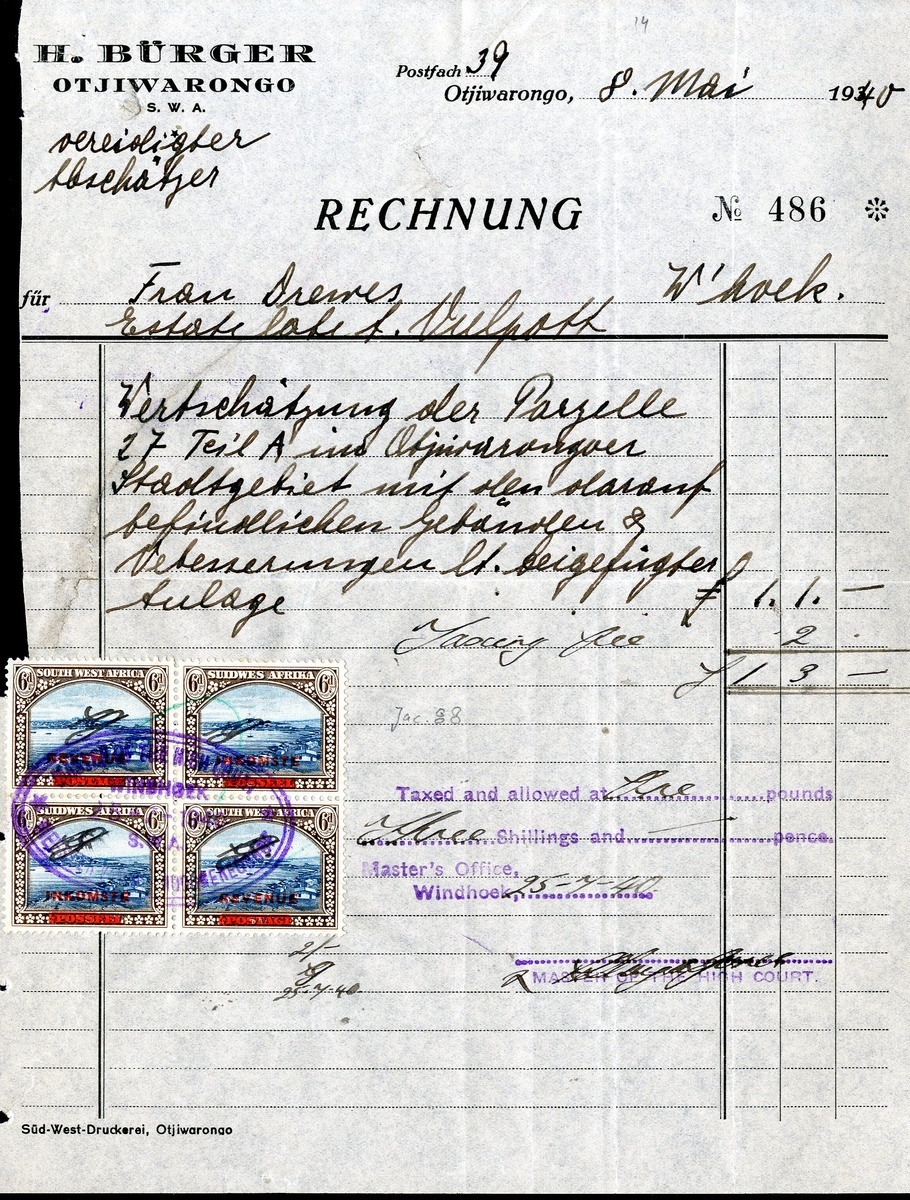 14
H. BÜRGER
OTJIWARONGO
S. W. A.
vereidigter
Abschätzer
Postfach 39
Otjiwarongo, 8. Mai 1940
RECHNUNG
№ 486
für Frau Drewes W'hoek.
Estate late A. Vulpott
Wertschätzung der Parzelle
27 Teil A im Otjiwarongoer
Stadtgebiet mit den darauf
befindlichen Gebäuden &
Vebesserungen lt. beigefügter
Anlage £ 1. 1. —
Taxing fee 2 .
£ 1 3 —
6d SOUTH WEST AFRICA 6d
REVENUE
POSTAGE
6d SUIDWES AFRIKA 6d
INKOMSTE
POSSEEL
6d SUIDWES AFRIKA 6d
INKOMSTE
POSSEEL
6d SOUTH WEST AFRICA 6d
REVENUE
POSTAGE
WINDHOEK
S.W.A.
Taxed and allowed at One pounds
Three Shillings and — pence.
Master's Office,
Windhoek, 25-7-40
MASTER OF THE HIGH COURT.
2/-
25-7-40
Süd-West-Druckerei, Otjiwarongo